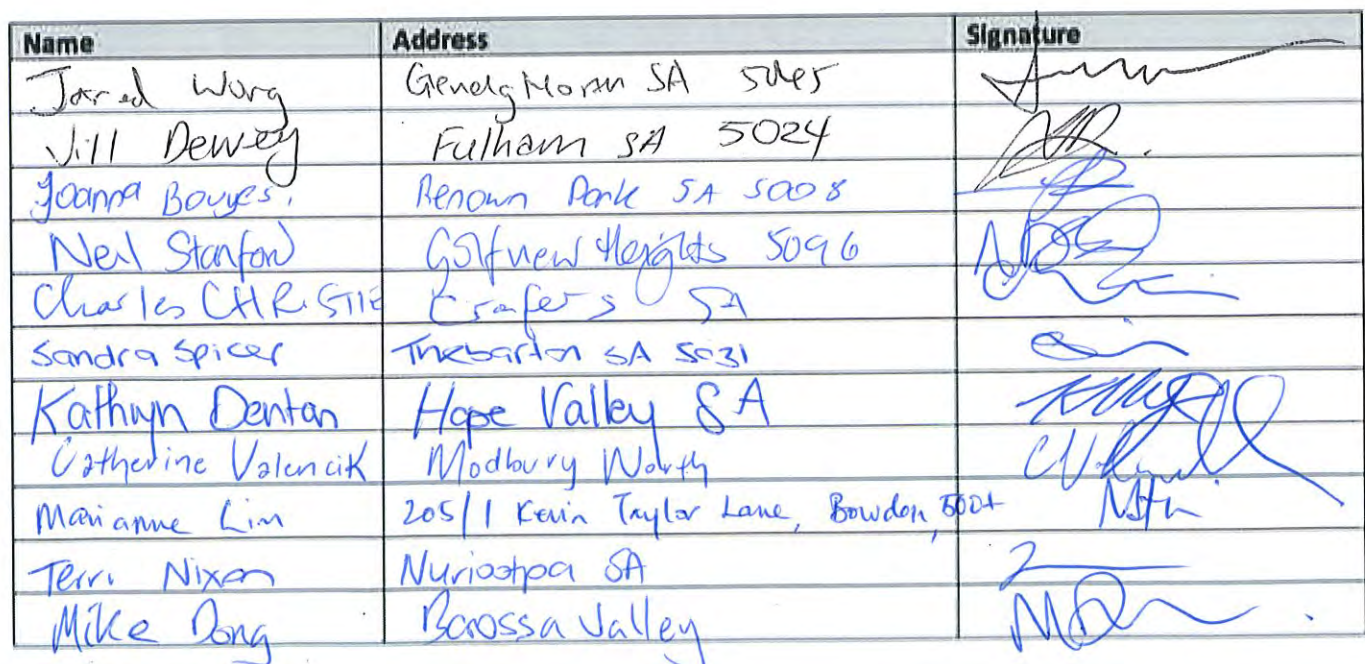 Name Address Signature
Jared Wong Glenelg North SA 5045
Jill Dewey Fulham SA 5024
Joanna Bouyes. Renown Park SA 5008
Neil Stanford Golfview Heights 5096
Charles CHRISTIE Crafers SA
Sandra Spicer Thebarton SA 5031
Kathryn Denton Hope Valley SA
Catherine Valencik Modbury North
Marianne Lim 205/1 Kevin Taylor Lane, Bowden, 5007
Terri Nixon Nuriootpa SA
Mike Dong Barossa Valley